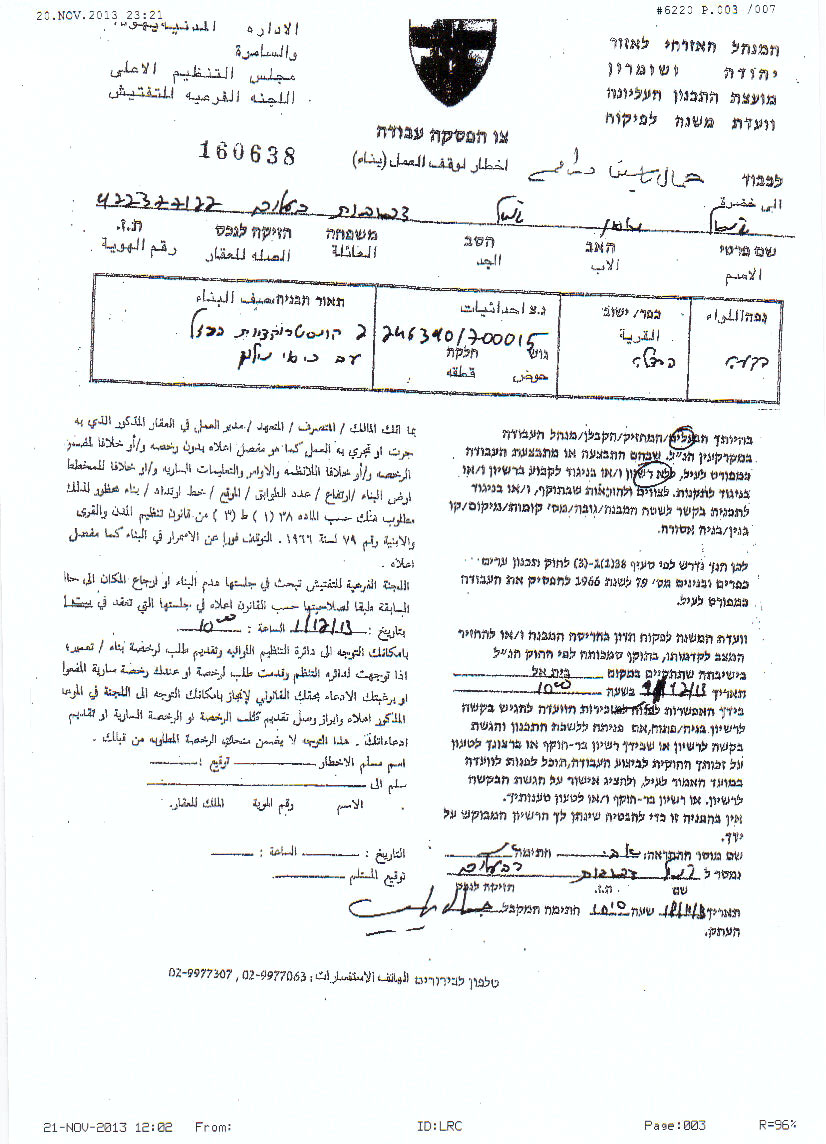 20.NOV.2013 23:21
#6220 P.003 /007
המנהל האזרחי לאזור
יהודה ושומרון
מועצת התכנון העליונה
וועדת משנה לפיקוח
الاداره المدنيه يهودا
والسامرة
مجلس التنظيم الاعلى
اللجنه الفرعيه للتفتيش
צו הפסקה עבודה
اخطار لوقف العمل (بناء)
160638
לכבוד
الى حضرة
שם פרטי האב הסב משפחה הזיקה לנכס ת.ז.
الاسم الاب الجد العائلة الصله للعقار رقم الهوية
נפה/اللواء
כפר/ישוב
القرية
נ.צ احداثيات
246340/700015
גוש חלקה
حوض قطعه
תאור הבניה/صيف البناء
2 קונסטרוקציות ברזל
בהיותך הבעלים/המחזיק/הקבלן/מנהל העבודה
במקרקעין הנ"ל, שבהם התבצעה או מתבצעת העבודה
כמפורט לעיל, ללא רשיון ו/או בניגוד לקבוע ברשיון ו/או
בניגוד לתקנות, לצווים ולהוראות שבתוקף, ו/או בניגוד
לתכנית בקשר לשטח המבנה/גובה/מס' קומות/מיקום/קו
בנין/בניה אסורה.
לכן הנך נדרש לפי סעיף 38(1)-(3) לחוק תכנון ערים
כפרים ובנינים מס' 79 לשנת 1966 להפסיק את העבודה
כמפורט לעיל.
וועדת המשנה לפקוח תדון בהריסת המבנה ו/או להחזיר
המצב לקדמותו, בתוקף סמכותה לפי החוק הנ"ל
בישיבתה שתקיים במקום בית אל
תאריך 1/12/13 בשעה 10:00
בידך האפשרות לפנות למזכירות הוועדה להגיש בקשה
לרשיון בניה/פתוח, אם פניתה ללשכת התכנון והגשת
בקשה לרשיון או שבידך רשיון בר-תוקף או ברצונך לטעון
על זכותך החוקית לביצוע העבודה, תוכל לפנות לוועדה
במועד האמור לעיל, ולהציג אישור על הגשת הבקשה
לרשיון, או רשיון בר-תוקף ו/או לטעון טענותיך.
אין בהפניה זו כדי להבטיח שינתן לך הרשיון המבוקש על
ידך.
שם מוסר ההתראה: חתימה
נמסר ל
שם ת.ז. הזיקה לנכס
תאריך 18/11/13 שעה 10:10 חתימת המקבל
העתק.
بما انك المالك / المتصرف / المتعهد / مدير العمل في العقار المذكور الذي به
جرت او تجري به العمل كما هو مفصل اعلاه بدون رخصه و/أو خلافا للمفسر
الرخصه و/أو خلافا للانظمه والاوامر والتعليمات الساريه و/او خلافا للمخطط
لوض البناء /ارتفاع / عدد الطوابق / الموقع / خط ارتداد / بناء محظور لذلك
مطلوب منك حسب الماده ٣٨ (١) ط (٣) من قانون تنظيم المدن والقرى
والابنية رقم ٧٩ لسنة ١٩٦٦ . التوقف فورا عن الاستمرار في البناء كما مفصل
اعلاه .
اللجنه الفرعية للتفتيش تبحث في جلستها هدم البناء او ارجاع المكان الى حال
السابقة طبقا لصلاحيتها حسب القانون اعلاه في جلستها التي تعقد في
بتاريخ : 1/12/13 الساعة : 10:00
بامكانك التوجه الى دائرة التنظيم اللوائيه وتقديم طلب لرخصة بناء / تعمير؛
اذا توجهت لدائره التنظم وقدمت طلب لرخصة او عندك رخصة سارية المفعول
او برغبتك الادعاء بحقك القانوني لإنجاز بامكانك التوجه الى اللجنة في الموعد
المذكور اعلاه وابراز وصل تقديم كطلب الرخصة او الرخصة السارية او تقديم
ادعاءاتك . هذا التوجه لا يضمن منحك الرخصة المطلوبه من قبلك .
اسم مسلم الاخطار توقيع :
سلم الى
الاسم رقم الهوية المالك للعقار.
التاريخ : الساعة :
توقيع المستلم
טלפון לבירורים الهاتف الاستفسارات : 02-9977063 , 02-9977307
21-NOV-2013 12:02 From: ID:LRC Page:003 R=96%